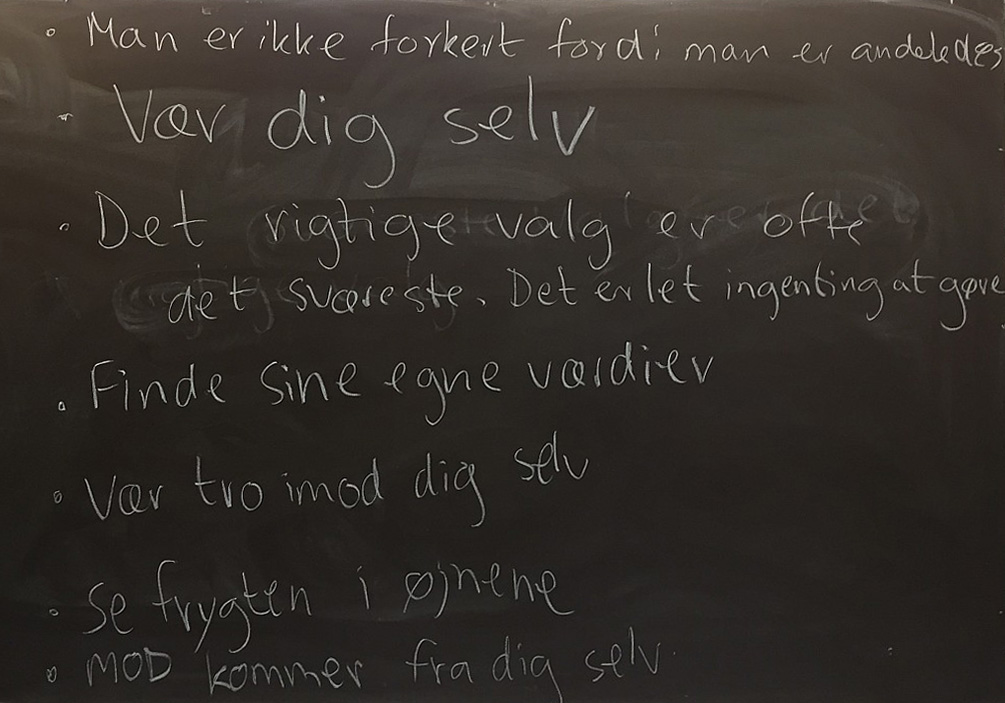 • Man er ikke forkert fordi man er andeledes
• Vær dig selv
• Det rigtige valg er ofte
det sværeste. Det er let ingenting at gøre
• Finde sine egne værdier
• Vær tro imod dig selv
• Se frygten i øjnene
• MOD kommer fra dig selv